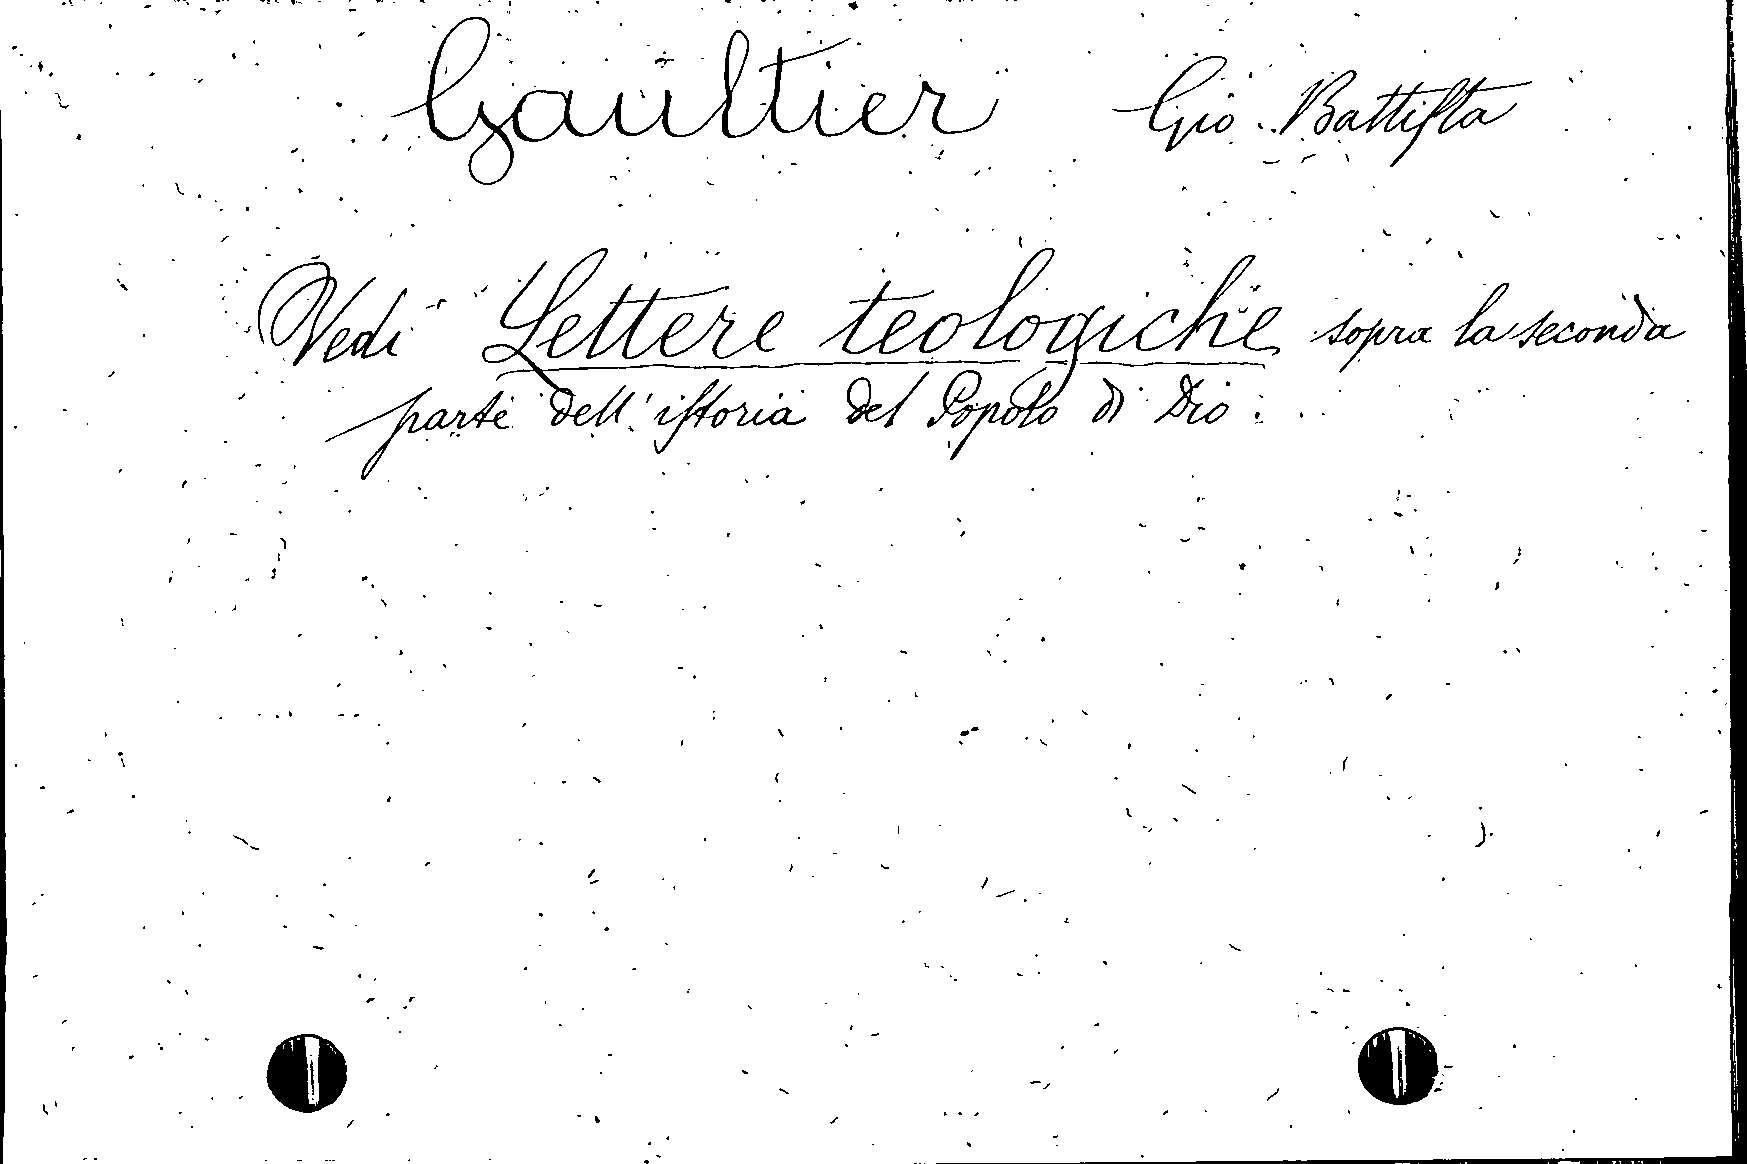 Gaultier Gio. Battista
Vedi Lettere teologiche sopra la seconda
parte dell'istoria del Popolo di Dio.